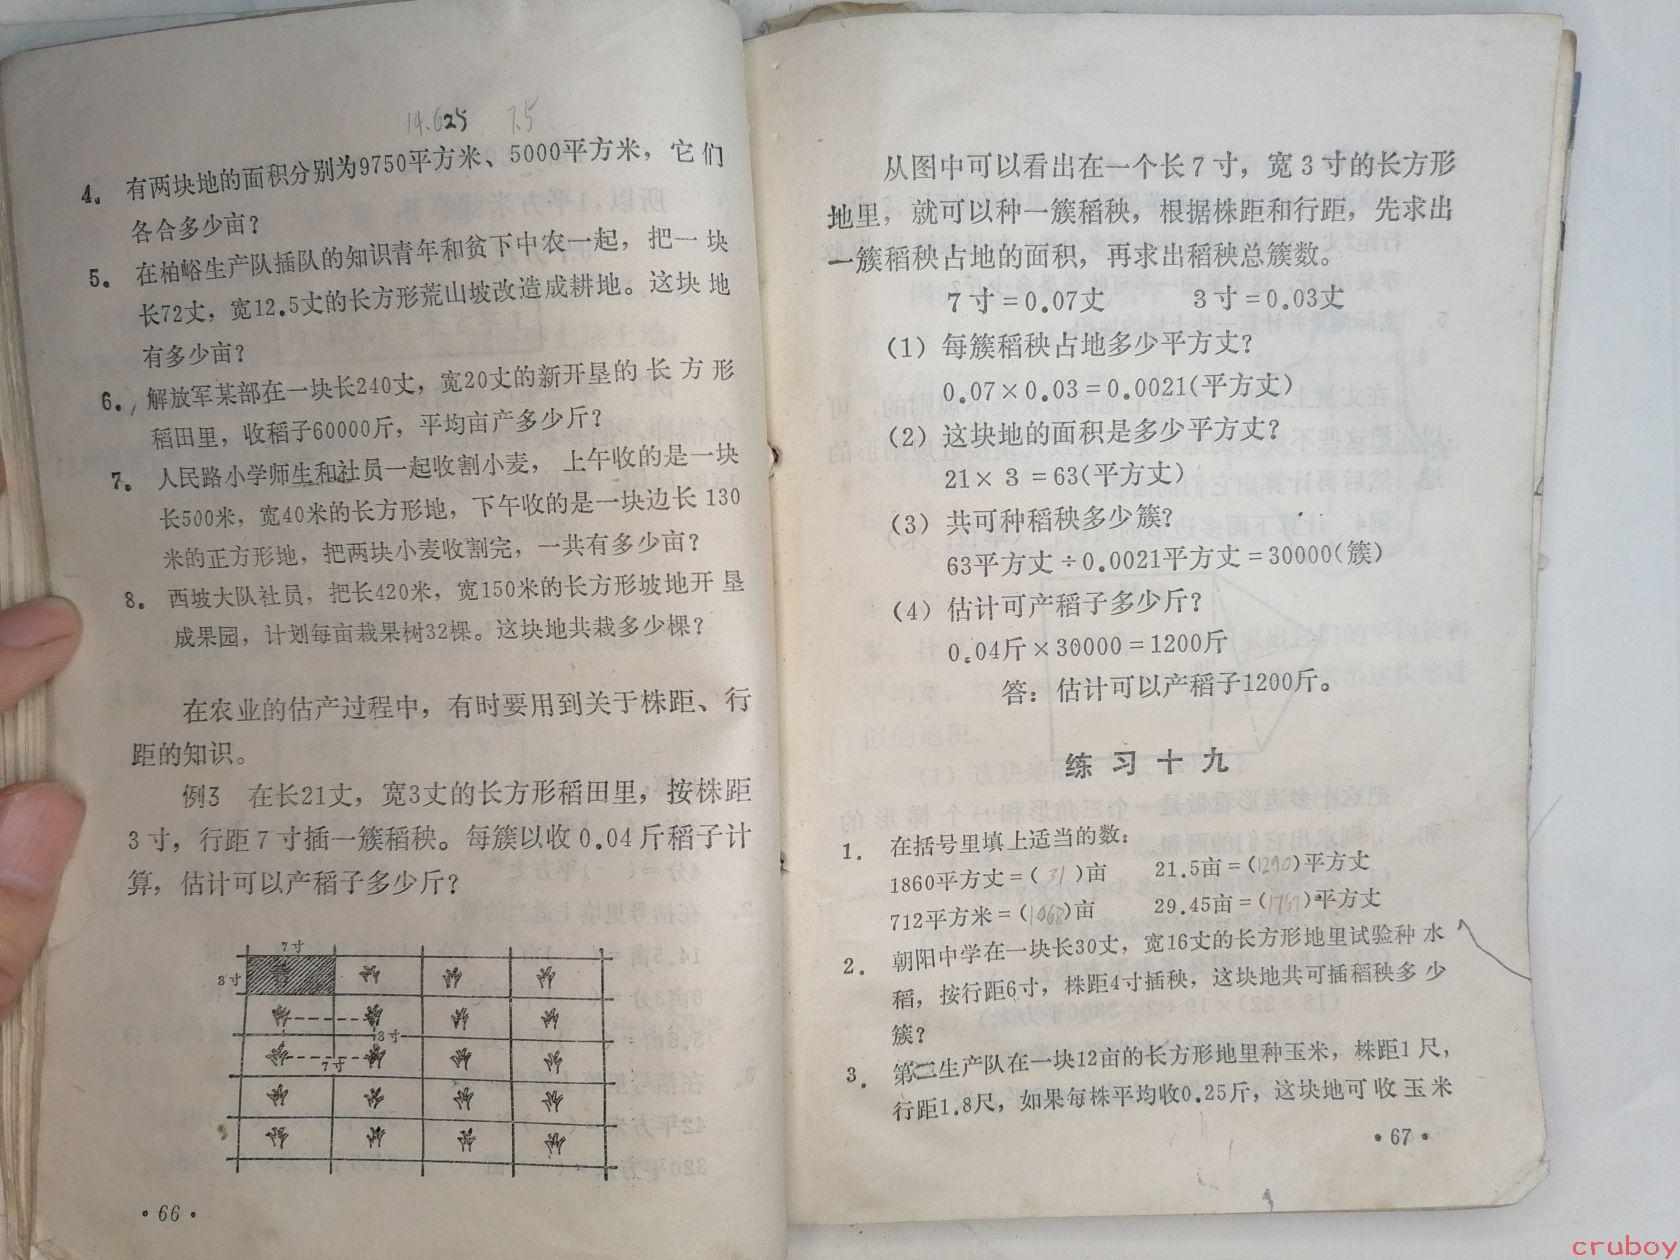 14.625 7.5
4. 有两块地的面积分别为9750平方米、5000平方米，它们
各合多少亩？
5. 在柏峪生产队插队的知识青年和贫下中农一起，把一块
长72丈，宽12.5丈的长方形荒山坡改造成耕地。这块地
有多少亩？
6. 解放军某部在一块长240丈，宽20丈的新开垦的长方形
稻田里，收稻子60000斤，平均亩产多少斤？
7. 人民路小学师生和社员一起收割小麦，上午收的是一块
长500米，宽40米的长方形地，下午收的是一块边长130
米的正方形地，把两块小麦收割完，一共有多少亩？
8. 西坡大队社员，把长420米，宽150米的长方形坡地开垦
成果园，计划每亩栽果树32棵。这块地共栽多少棵？
在农业的估产过程中，有时要用到关于株距、行
距的知识。
例3 在长21丈，宽3丈的长方形稻田里，按株距
3寸，行距7寸插一簇稻秧。每簇以收0.04斤稻子计
算，估计可以产稻子多少斤？
7寸
3寸
3寸
7寸
·66·
从图中可以看出在一个长7寸，宽3寸的长方形
地里，就可以种一簇稻秧，根据株距和行距，先求出
一簇稻秧占地的面积，再求出稻秧总簇数。
7寸=0.07丈 3寸=0.03丈
（1）每簇稻秧占地多少平方丈？
0.07×0.03=0.0021(平方丈)
（2）这块地的面积是多少平方丈？
21×3=63(平方丈)
（3）共可种稻秧多少簇？
63平方丈÷0.0021平方丈=30000(簇)
（4）估计可产稻子多少斤？
0.04斤×30000=1200斤
答：估计可以产稻子1200斤。
练习十九
1. 在括号里填上适当的数：
1860平方丈=(31)亩 21.5亩=(1290)平方丈
712平方米=(1.068)亩 29.45亩=()平方丈
2. 朝阳中学在一块长30丈，宽16丈的长方形地里试验种水
稻，按行距6寸，株距4寸插秧，这块地共可插稻秧多少
簇？
3. 第二生产队在一块12亩的长方形地里种玉米，株距1尺，
行距1.8尺，如果每株平均收0.25斤，这块地可收玉米
·67·
cruboy